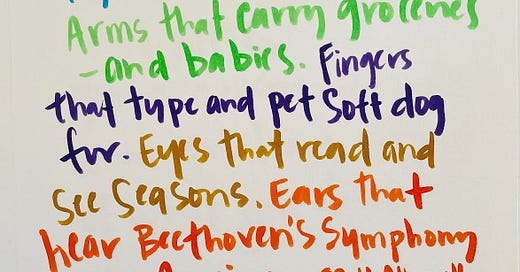 Arms that carry groceries
-and babies. Fingers
that type and pet soft dog
fur. Eyes that read and
see seasons. Ears that
hear Beethoven's Symphony